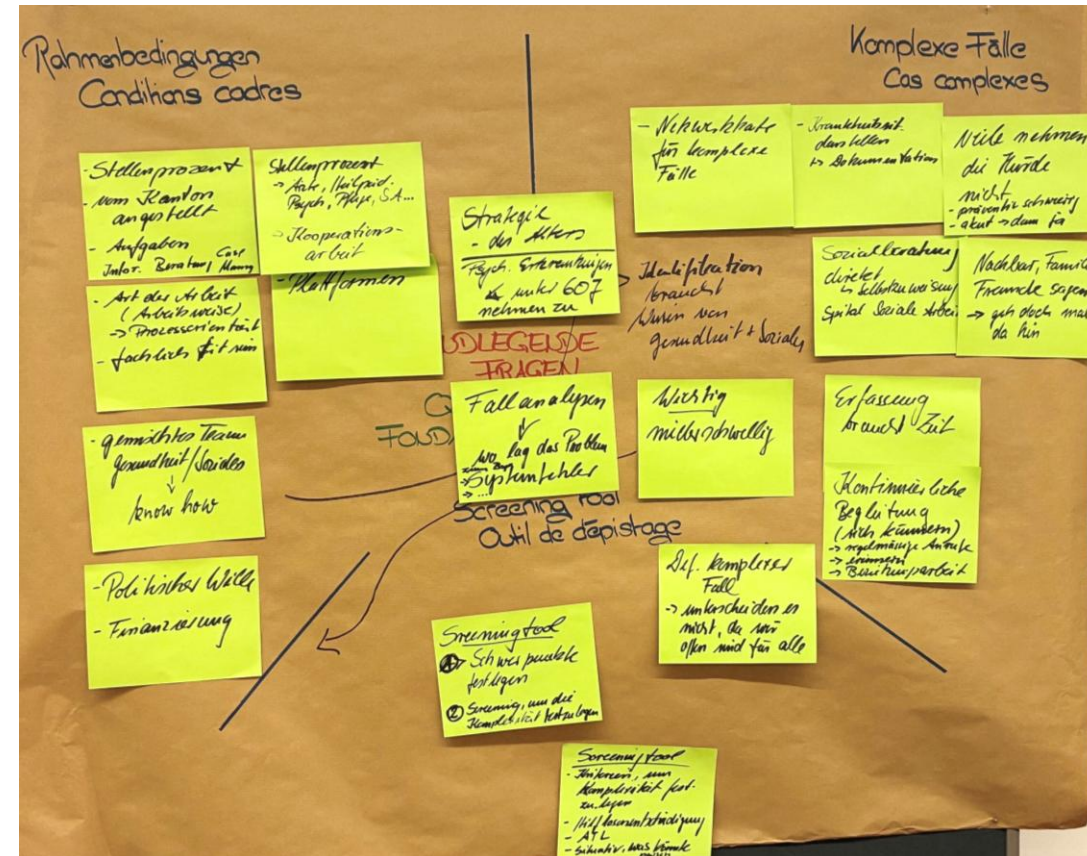 Rahmenbedingungen
Conditions cadres
Komplexe Fälle
Cas complexes
- Stellenprozent
- vom Kanton
angestellt
- Aufgaben
Infor. Beratung Case
Stellenprozent
-> Ärzte, Heilpäd.
Psych, Pflege, SA...
-> Kooperations-
arbeit
- Art der Arbeit
(Arbeitsweise)
-> Prozessorientiert
- fachlich fit sein
- Plattformen
- gemischtes Team
Gesundheit/Soziales
↓
know how
- Politischer Wille
- Finanzierung
Strategie
- des Alters
Psych. Erkrankungen
unter 60J
nehmen zu
DLEGENDE
FRAGEN
FOUDA
Fallanalysen
↓
wo lag das Problem
-> Systemfehler
-> ...
Screening tool
Outil de dépistage
- Netzwerkkarte
für komplexe
Fälle
- Krankheitsit.
darstellen
-> Dokumentation
Viele nehmen
die Hürde
nicht
- präventiv schwierig
- akut -> dann ja
-> Identifikation
braucht
Wissen von
Gesundheit + Soziales
Sozialberatung
direkt
-> Selbstzuweisung
Spital Soziale Arbeit
Nachbar, Famili
Freunde sagen
-> geh doch mal
da hin
Wichtig
niederschwellig
Erfassung
braucht Zeit
Kontinuierliche
Begleitung
(sich kümmern)
-> regelmässige Anrufe
-> erinnern
-> Beziehungsarbeit
Def. komplexer
Fall
-> unterscheiden es
nicht, da wir
offen sind für alle
Sreeningtool
① Schwerpunkte
festlegen
② Screening, um die
Komplexität festzulegen
Screeningtool
- Kriterien, um
Komplexität fest-
zulegen
- ATL
- situativ, was könnte